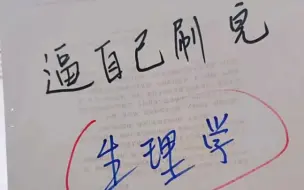 逼自己刷完
生理学